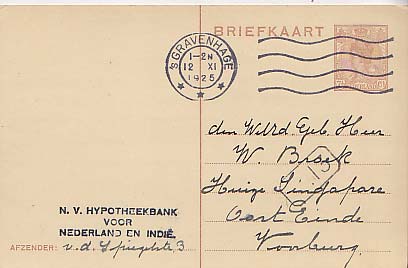 BRIEFKAART
'sGRAVENHAGE
1-2N
12 XI
1925
den Wel'd Geb. Heer
W. Broek
Huize Singapore
Oost Einde
Voorburg.
N. V. HYPOTHEEKBANK
VOOR
NEDERLAND EN INDIË.
AFZENDER: v.d. Spiegelstr 3